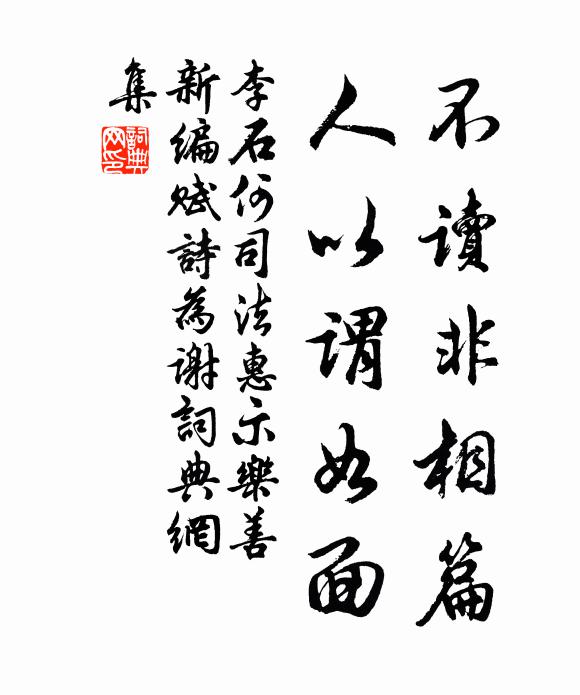 不讀非相篇
人以謂如面
李石何司法惠示樂善
新編賦詩為謝詞典網
集
詞典网印